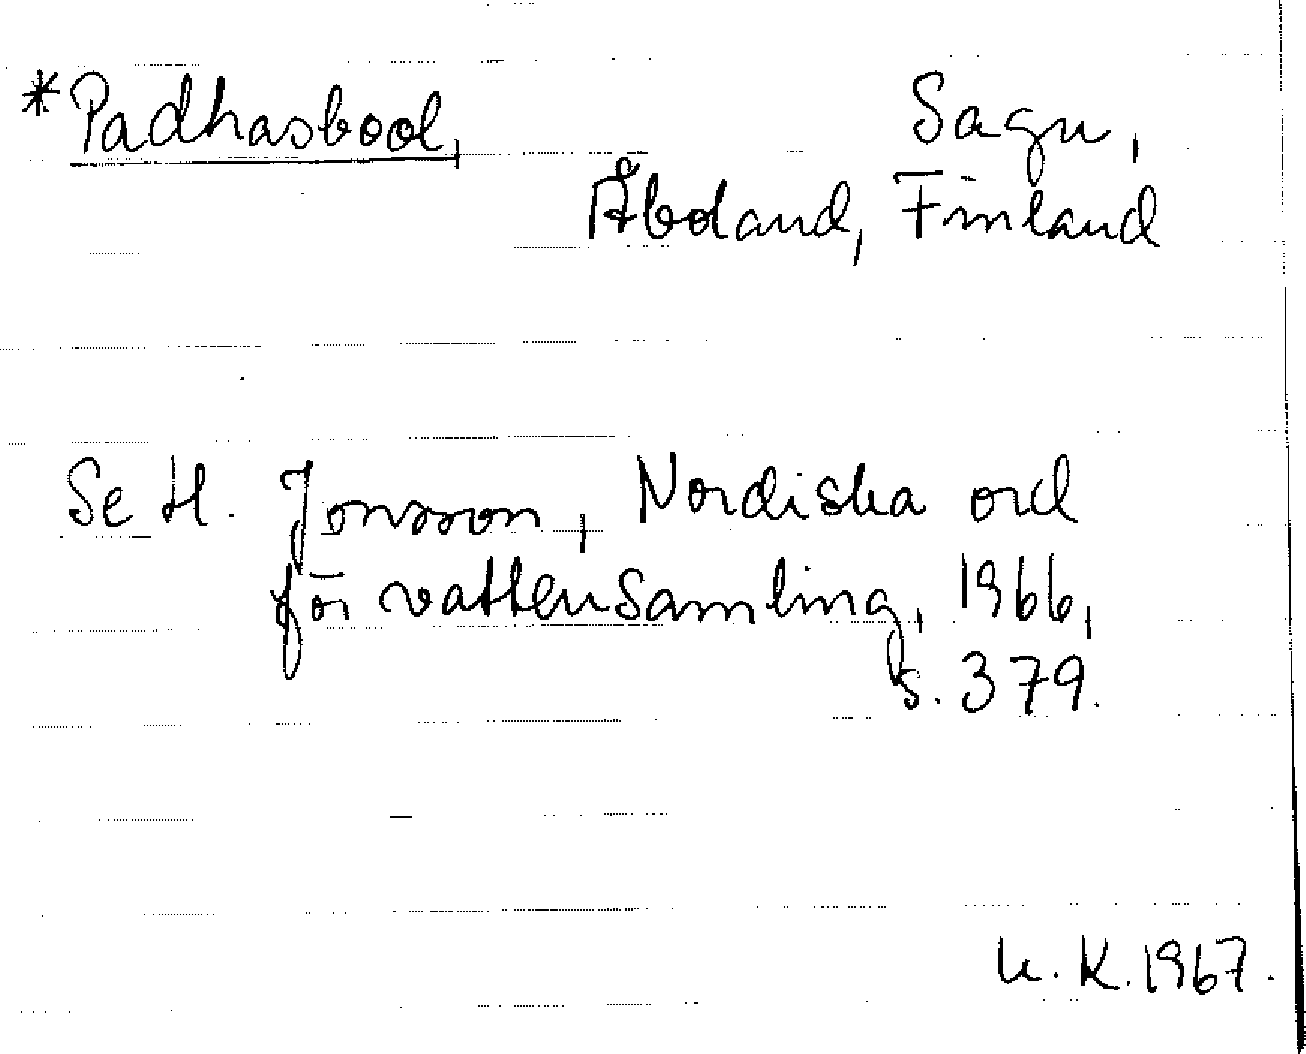 *Padhasbool, Sagu,
Åboland, Finland
Se H. Jonsson, Nordiska ord
för vattensamling, 1966,
s. 379.
U. K. 1967.